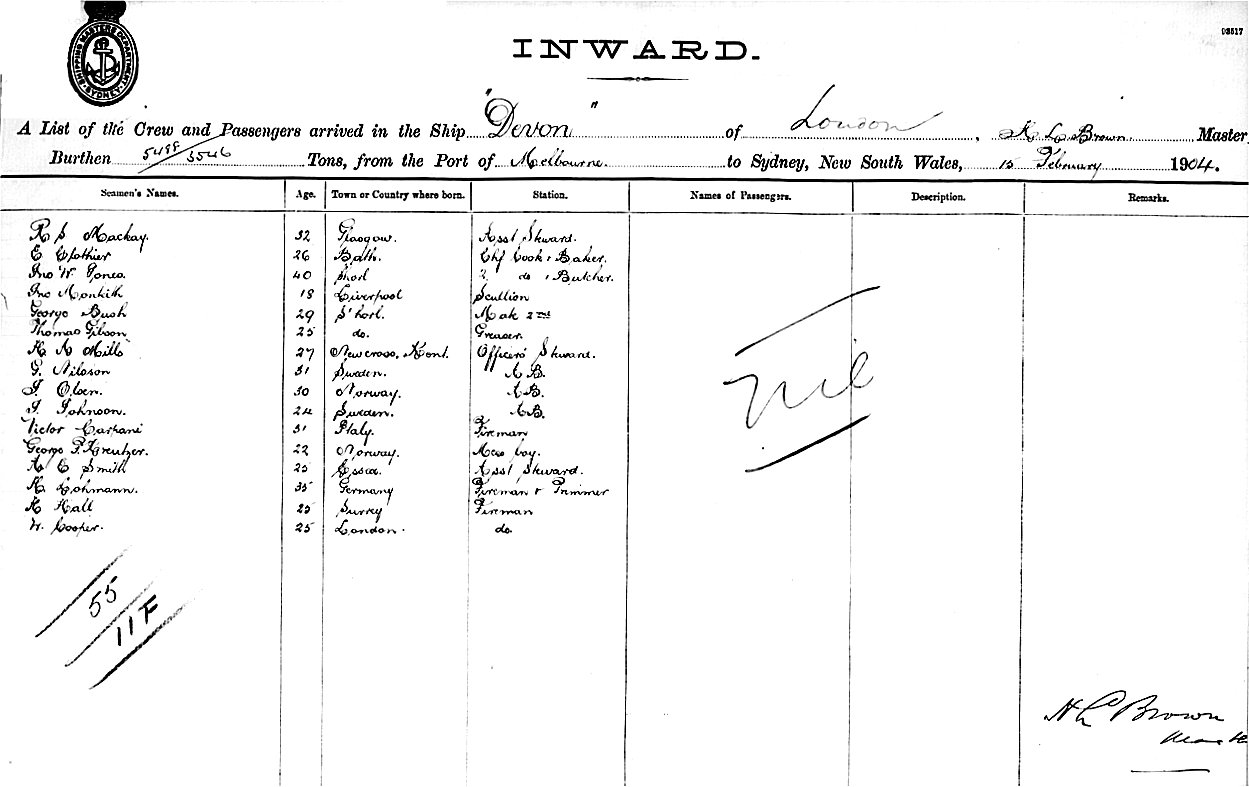 SHIPPING MASTERS DEPARTMENT SYDNEY
03517
INWARD.
A List of the Crew and Passengers arrived in the Ship "Devon" of London, H L Brown Master
Burthen 5489/3546 Tons, from the Port of Melbourne to Sydney, New South Wales, 15 February 1904.
Seamen's Names. Age. Town or Country where born. Station. Names of Passengers. Description. Remarks.
R S Mackay. 32 Glasgow. Asst Steward.
E Clothier 26 Bath. Chf Cook & Baker.
Jno W. Jones 40 Shorl 2 do & Butcher.
Jno Monkith 18 Liverpool Scullion
George Bush 29 S'horl. Mate 2nd
Thomas Gibson 25 do. Greaser.
H A Mills 27 New cross, Kent. Officers' Steward.
G. Nilsson 31 Sweden. A B.
J. Olsen. 30 Norway. A B.
J. Johnson. 24 Sweden. A B.
Victor 31 Italy. Fireman
George P. Kreutzer. 22 Norway. Mess boy.
A E Smith 25 Essex. Asst Steward.
H. Lohmann. 35 Germany Fireman & Trimmer
H Hall 25 Surrey Fireman
W. Cooper. 25 London. do.
Nil
55
11 F
H L Brown
Master